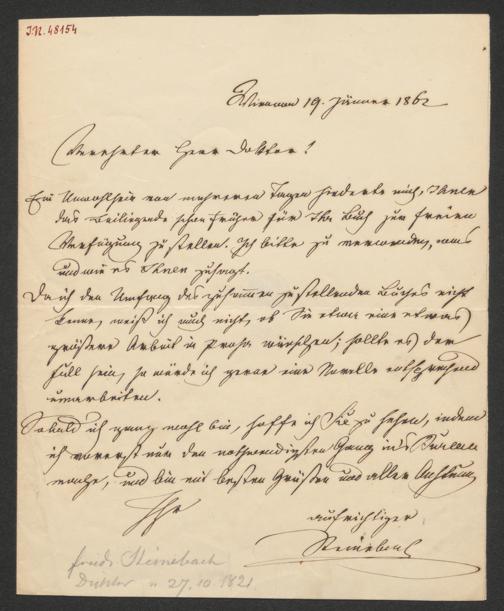 I.N. 48154
19. Jänner 1862
Verehrter Herr Doktor!
Ein Unwohlsein von mehreren Tagen hinderte mich, Ihnen
das Beiliegende schon früher für Ihr Buch zur freien
Verfügung zu stellen. Ich bitte zu verwenden, was
und wie es Ihnen zusagt.
Da ich den Umfang des zusammen zu stellenden Buches nicht
kenne, weiß ich auch nicht, ob Sie etwa eine etwas
größere Arbeit in Prosa wünschen; sollte es der
Fall sein, so würde ich gerne eine Novelle entsprechend
umarbeiten.
Sobald ich ganz wohl bin, hoffe ich Sie zu sehen, indem
ich vorerst nur den nothwendigsten Gang in's Bureau
mache, und bin mit besten Grüßen und aller Achtung
Ihr
aufrichtiger
Steinebach
Friedr. Steinebach
Dichter 27.10.1821